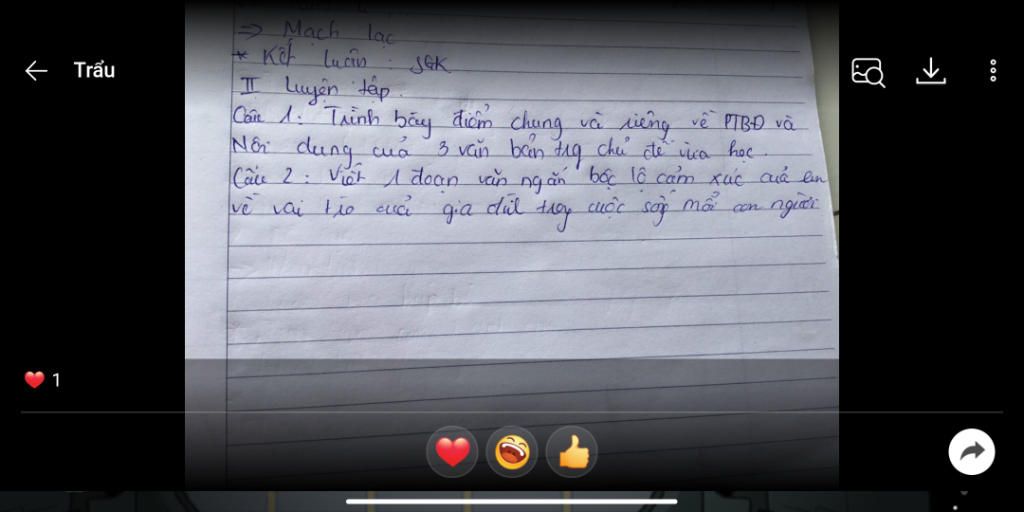 ⇒ Mạch lạc
Trẩu
* Kết luận : SGK
II Luyện tập.
Câu 1: Trình bày điểm chung và riêng về PTBĐ và
Nội dung của 3 văn bản trg chủ đề vừa học.
Câu 2: Viết 1 đoạn văn ngắn bộc lộ cảm xúc của em
về vai trò của gia đình trg cuộc sống mỗi con người
1